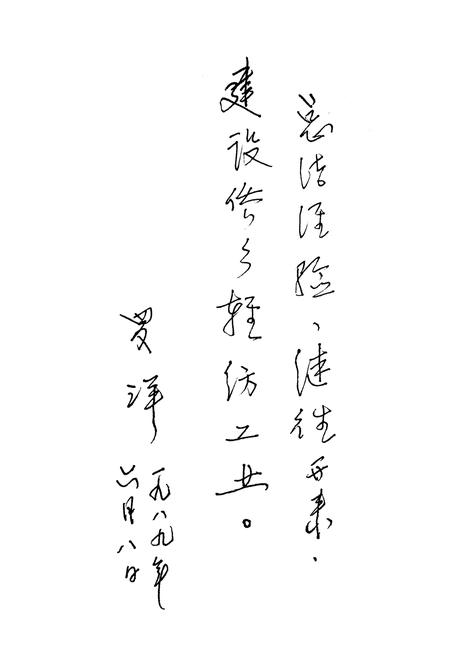 总结经验、继往开来.
建设侨乡轻纺工业。
罗洋
一九八九年
六月八日